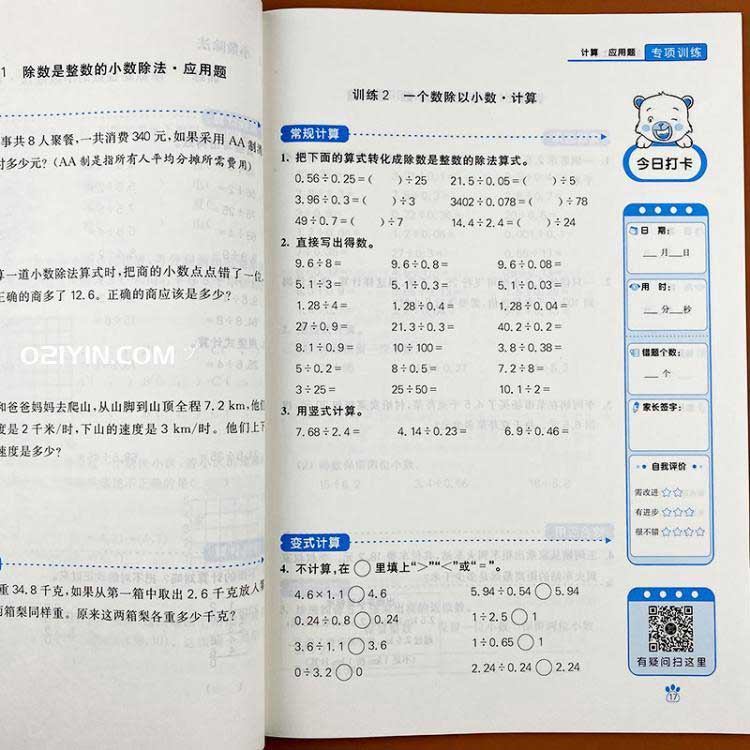 1 除数是整数的小数除法·应用题
事共8人聚餐,一共消费340元,如果采用AA制
付多少元?(AA制是指所有人平均分摊所需费用)
算一道小数除法算式时,把商的小数点点错了一位
正确的商多了12.6。正确的商应该是多少?
和爸爸妈妈去爬山,从山脚到山顶全程7.2 km,他们
度是2千米/时,下山的速度是3 km/时。他们上下
速度是多少?
重34.8千克,如果从第一箱中取出2.6千克放入
两箱梨同样重。原来这两箱梨各重多少千克?
021YIN.COM
计算 应用题 专项训练
训练2 一个数除以小数·计算
常规计算
1. 把下面的算式转化成除数是整数的除法算式。
0.56÷0.25=( )÷25 21.5÷0.05=( )÷5
3.96÷0.3=( )÷3 3402÷0.078=( )÷78
49÷0.7=( )÷7 14.4÷2.4=( )÷24
2. 直接写出得数。
9.6÷8= 9.6÷0.8= 9.6÷0.08=
5.1÷3= 5.1÷0.3= 5.1÷0.03=
1.28÷4= 1.28÷0.4= 1.28÷0.04=
27÷0.9= 21.3÷0.3= 40.2÷0.2=
8.1÷0.9= 10÷100= 3.8÷0.38=
5÷0.2= 8÷0.5= 7.2÷8=
3÷25= 25÷50= 10.1÷2=
3. 用竖式计算。
7.68÷2.4= 4.14÷0.23= 6.9÷0.46=
变式计算
4. 不计算,在○里填上“>”“<”或“=”。
4.6×1.1○4.6 5.94÷0.54○5.94
0.24÷0.8○0.24 1÷2.5○1
3.6÷1.1○3.6 1÷0.65○1
0÷3.2○0 2.24÷0.24○2.24
今日打卡
日 期:
月 日
用 时:
分 秒
错题个数:
个
家长签字:
自我评价
需改进☆☆
有进步☆☆☆
很不错☆☆☆☆
有疑问扫这里
17